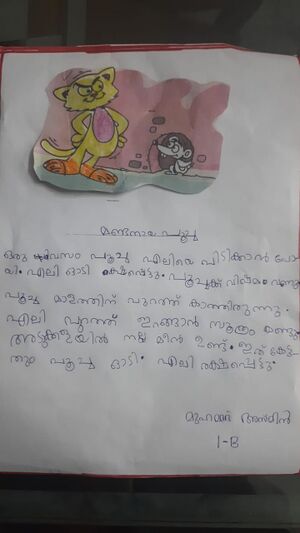 മണ്ടനായ പൂച്ച
ഒരു ദിവസം പൂച്ച എലിയെ പിടിക്കാൻ പോ
യി. എലി ഓടി രക്ഷപ്പെട്ടു. പൂച്ചക്ക് വിഷമം വന്നു
പൂച്ച മാളത്തിന് പുറത്ത് കാത്തിരുന്നു.
എലി പുറത്ത് ഇറങ്ങാൻ സൂത്രം കണ്ടെത്തി
അടുക്കളയിൽ നല്ല മീൻ ഉണ്ട്. ഇത് കേട്ട
തും പൂച്ച ഓടി. എലി രക്ഷപ്പെട്ടു.
മുഹമ്മദ് അസ്മിൻ
1-B